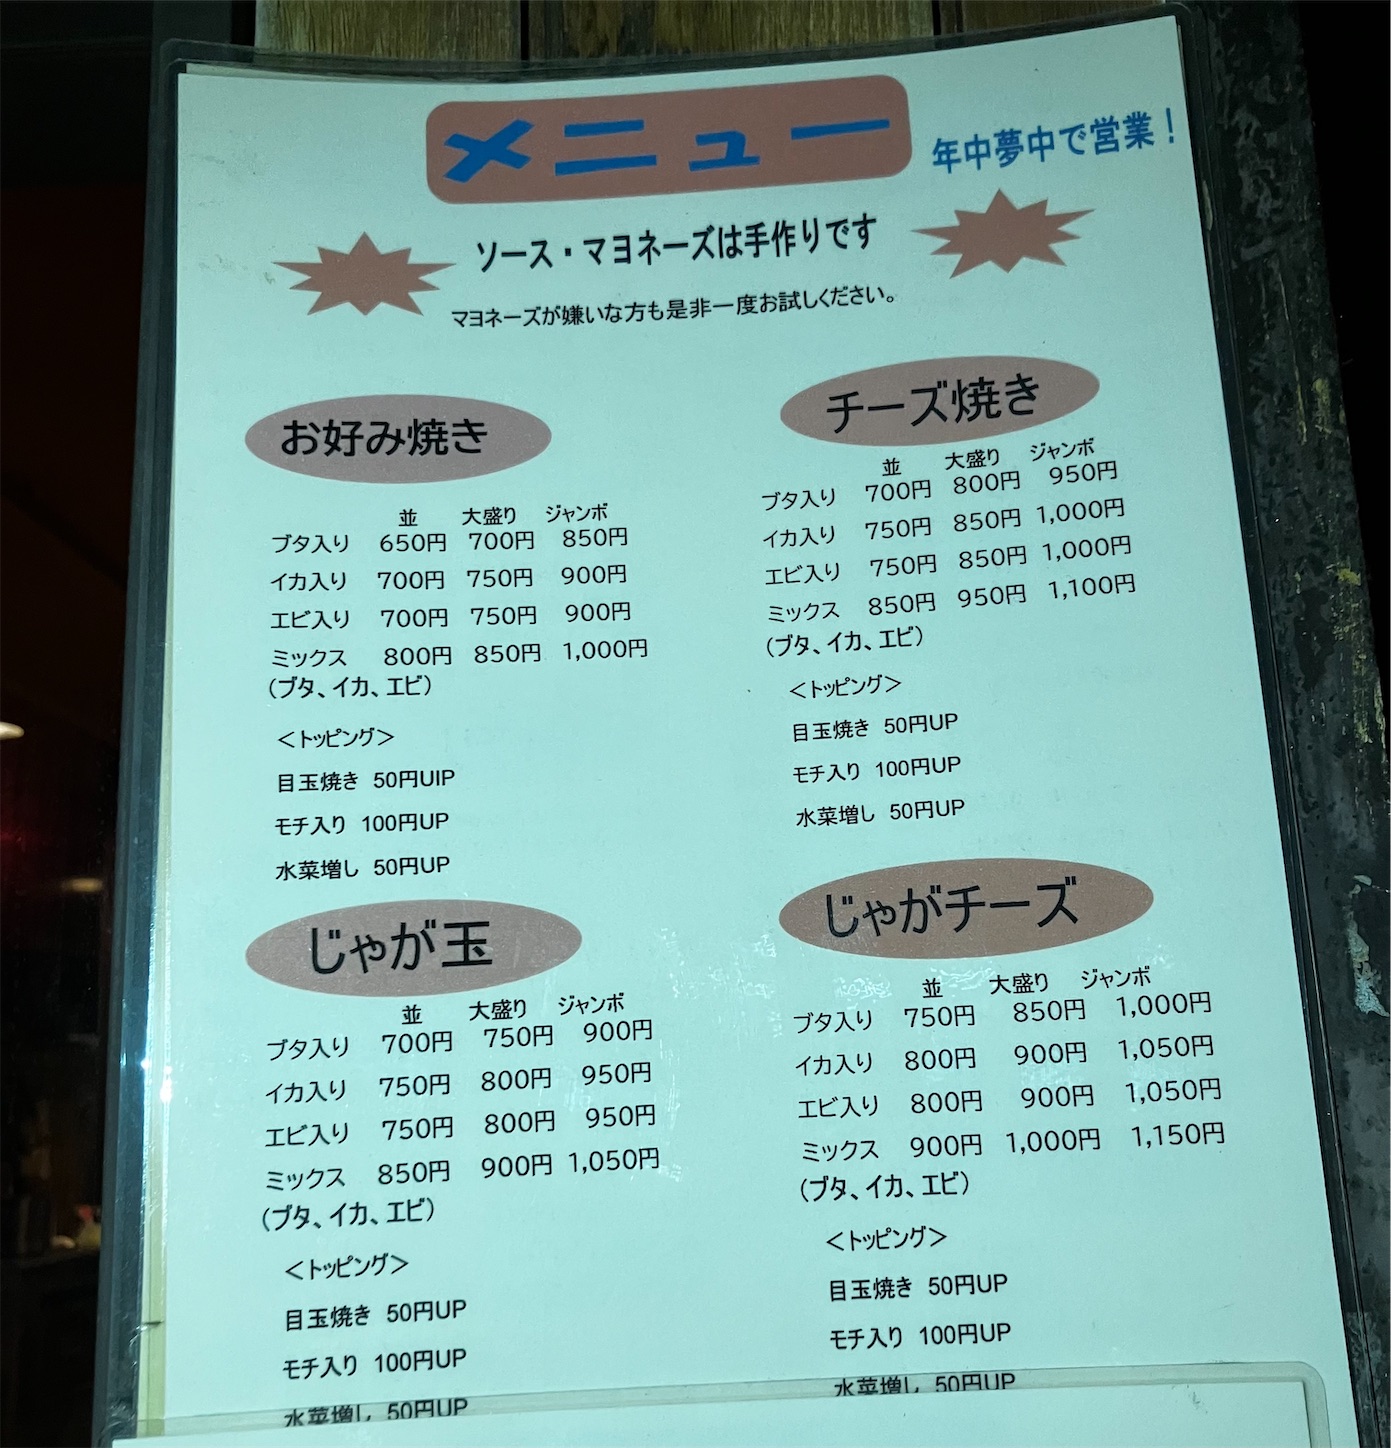 メニュー
年中夢中で営業！
ソース・マヨネーズは手作りです
マヨネーズが嫌いな方も是非一度お試しください。
お好み焼き
並 大盛り ジャンボ
ブタ入り 650円 700円 850円
イカ入り 700円 750円 900円
エビ入り 700円 750円 900円
ミックス 800円 850円 1,000円
（ブタ、イカ、エビ）
＜トッピング＞
目玉焼き 50円UIP
モチ入り 100円UP
水菜増し 50円UP
チーズ焼き
並 大盛り ジャンボ
ブタ入り 700円 800円 950円
イカ入り 750円 850円 1,000円
エビ入り 750円 850円 1,000円
ミックス 850円 950円 1,100円
（ブタ、イカ、エビ）
＜トッピング＞
目玉焼き 50円UP
モチ入り 100円UP
水菜増し 50円UP
じゃが玉
並 大盛り ジャンボ
ブタ入り 700円 750円 900円
イカ入り 750円 800円 950円
エビ入り 750円 800円 950円
ミックス 850円 900円 1,050円
（ブタ、イカ、エビ）
＜トッピング＞
目玉焼き 50円UP
モチ入り 100円UP
水菜増し 50円UP
じゃがチーズ
並 大盛り ジャンボ
ブタ入り 750円 850円 1,000円
イカ入り 800円 900円 1,050円
エビ入り 800円 900円 1,050円
ミックス 900円 1,000円 1,150円
（ブタ、イカ、エビ）
＜トッピング＞
目玉焼き 50円UP
モチ入り 100円UP
水菜増し 50円UP